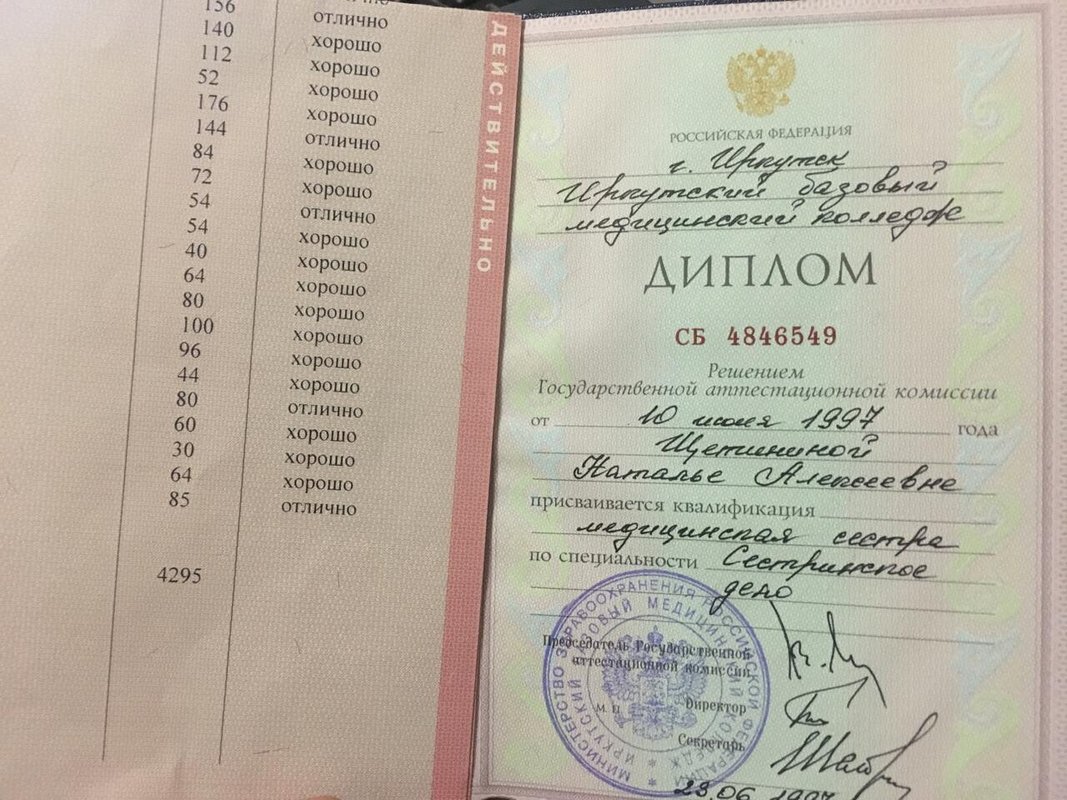 156
140 отлично
112 хорошо
52 хорошо
176 хорошо
144 хорошо
84 отлично
72 хорошо
54 хорошо
54 отлично
40 хорошо
64 хорошо
80 хорошо
100 хорошо
96 хорошо
44 хорошо
80 хорошо
60 отлично
30 хорошо
64 хорошо
85 хорошо
отлично
4295
ДЕЙСТВИТЕЛЬНО
РОССИЙСКАЯ ФЕДЕРАЦИЯ
г. Иркутск
Иркутский базовый
медицинский колледж
ДИПЛОМ
СБ 4846549
Решением
Государственной аттестационной комиссии
от 10 июня 1997 года
Щетининой
Наталье Алексеевне
присваивается квалификация
медицинская сестра
по специальности Сестринское
дело
Председатель Государственной
аттестационной комиссии
М. П. Директор
Секретарь
23.06.1997
МИНИСТЕРСТВО ЗДРАВООХРАНЕНИЯ РОССИЙСКОЙ ФЕДЕРАЦИИ
ИРКУТСКИЙ БАЗОВЫЙ МЕДИЦИНСКИЙ КОЛЛЕДЖ